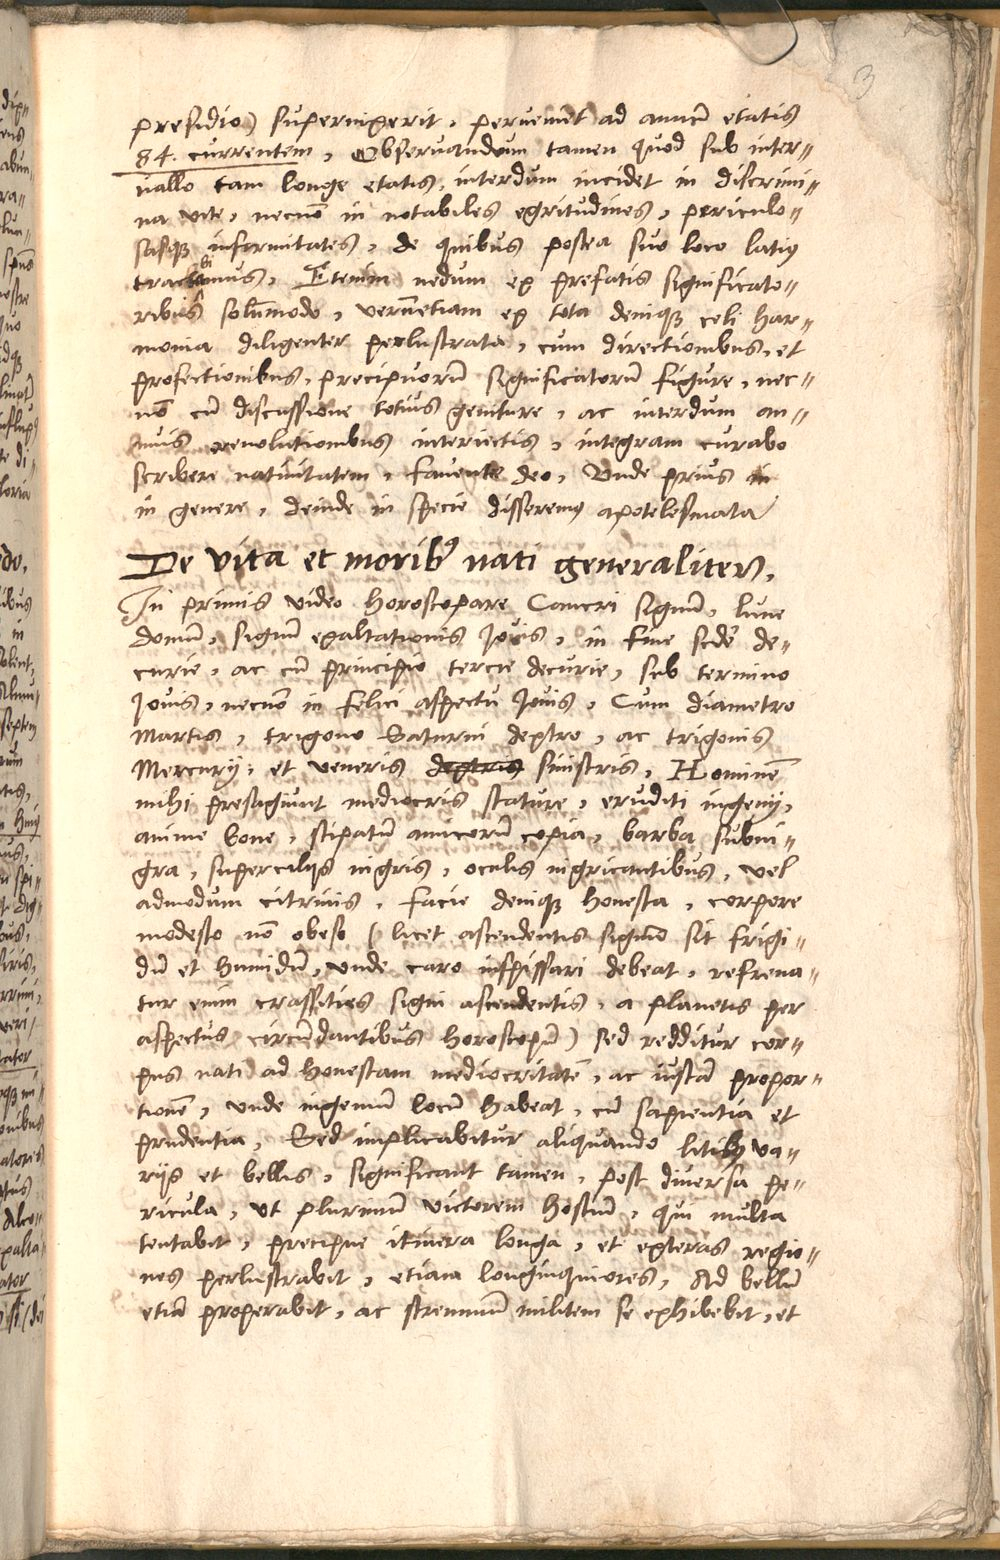 3
presidio) supervixerit, perveniet ad annũ etatis
84. currentem, Observandum tamen quod sub inter„
vallo tam longe etatis, interdum incidet in discrimi„
na vite, necnõ in notabiles egritudines, periculo„
sasq̃ infirmitates, de quibus postea suo loco latiꝰ
tractabimus, Etenim nedum ex prefatis significato„
ribus solũmodo, verũetiam ex tota deniq̃ celi har„
monia diligenter perlustrata, cum directionibus, et
profectionibus, precipuorũ significatorũ figure, nec„
nõ cũ discussione totius geniture, ac interdum an„
nuis revolutionibus interiectis, integram curabo
scribere nativitatem, favente deo, Unde prius in
in genere, deinde in specie disseremꝰ apotelesmata
De vita et moribꝰ nati generaliter,
In primis video horoscopare Cancri signũ, lune
domũ, signũ exaltationis Jovis, in fine scde de„
curie, ac cũ principio tercie decurie, sub termino
Jovis, necnõ in felici aspectu Jovis, Cum diametro
Martis, trigono Saturni dextro, ac trigonis
Mercurij, et veneris dextris sinistris, Hominẽ
mihi presagiunt mediocris stature, eruditi ingenij,
anime bone, stipatũ amicorũ copia, barba subni„
gra, supercilijs nigris, oculis nigricantibus, vel
admodum citrinis, facie deniq̃ honesta, corpore
modesto nõ obeso (licet ascendentis signũ sit frigi„
dũ et humidũ, unde caro inspissari debeat, refrena„
tur enim crassities signi ascendentis, a planetis per
aspectus circũdantibus horoscopũ) sed redditur cor„
pus nati ad honestam mediocritatẽ, ac iustã propor„
tionẽ, unde ingeniũ locũ habeat, cũ sapientia et
prudentia, Sed implicabitur aliquando litibꝰ va„
rijs et bellis, significant tamen, post diversa pe„
ricula, ut plurimũ victorem hostiũ, qui multa
tentabit, precipue itinera longa, et exteras regio„
nes perlustrabit, etiam longinquiores, Ad bellũ
etiã properabit, ac strenuũ militem se exhibebit, et